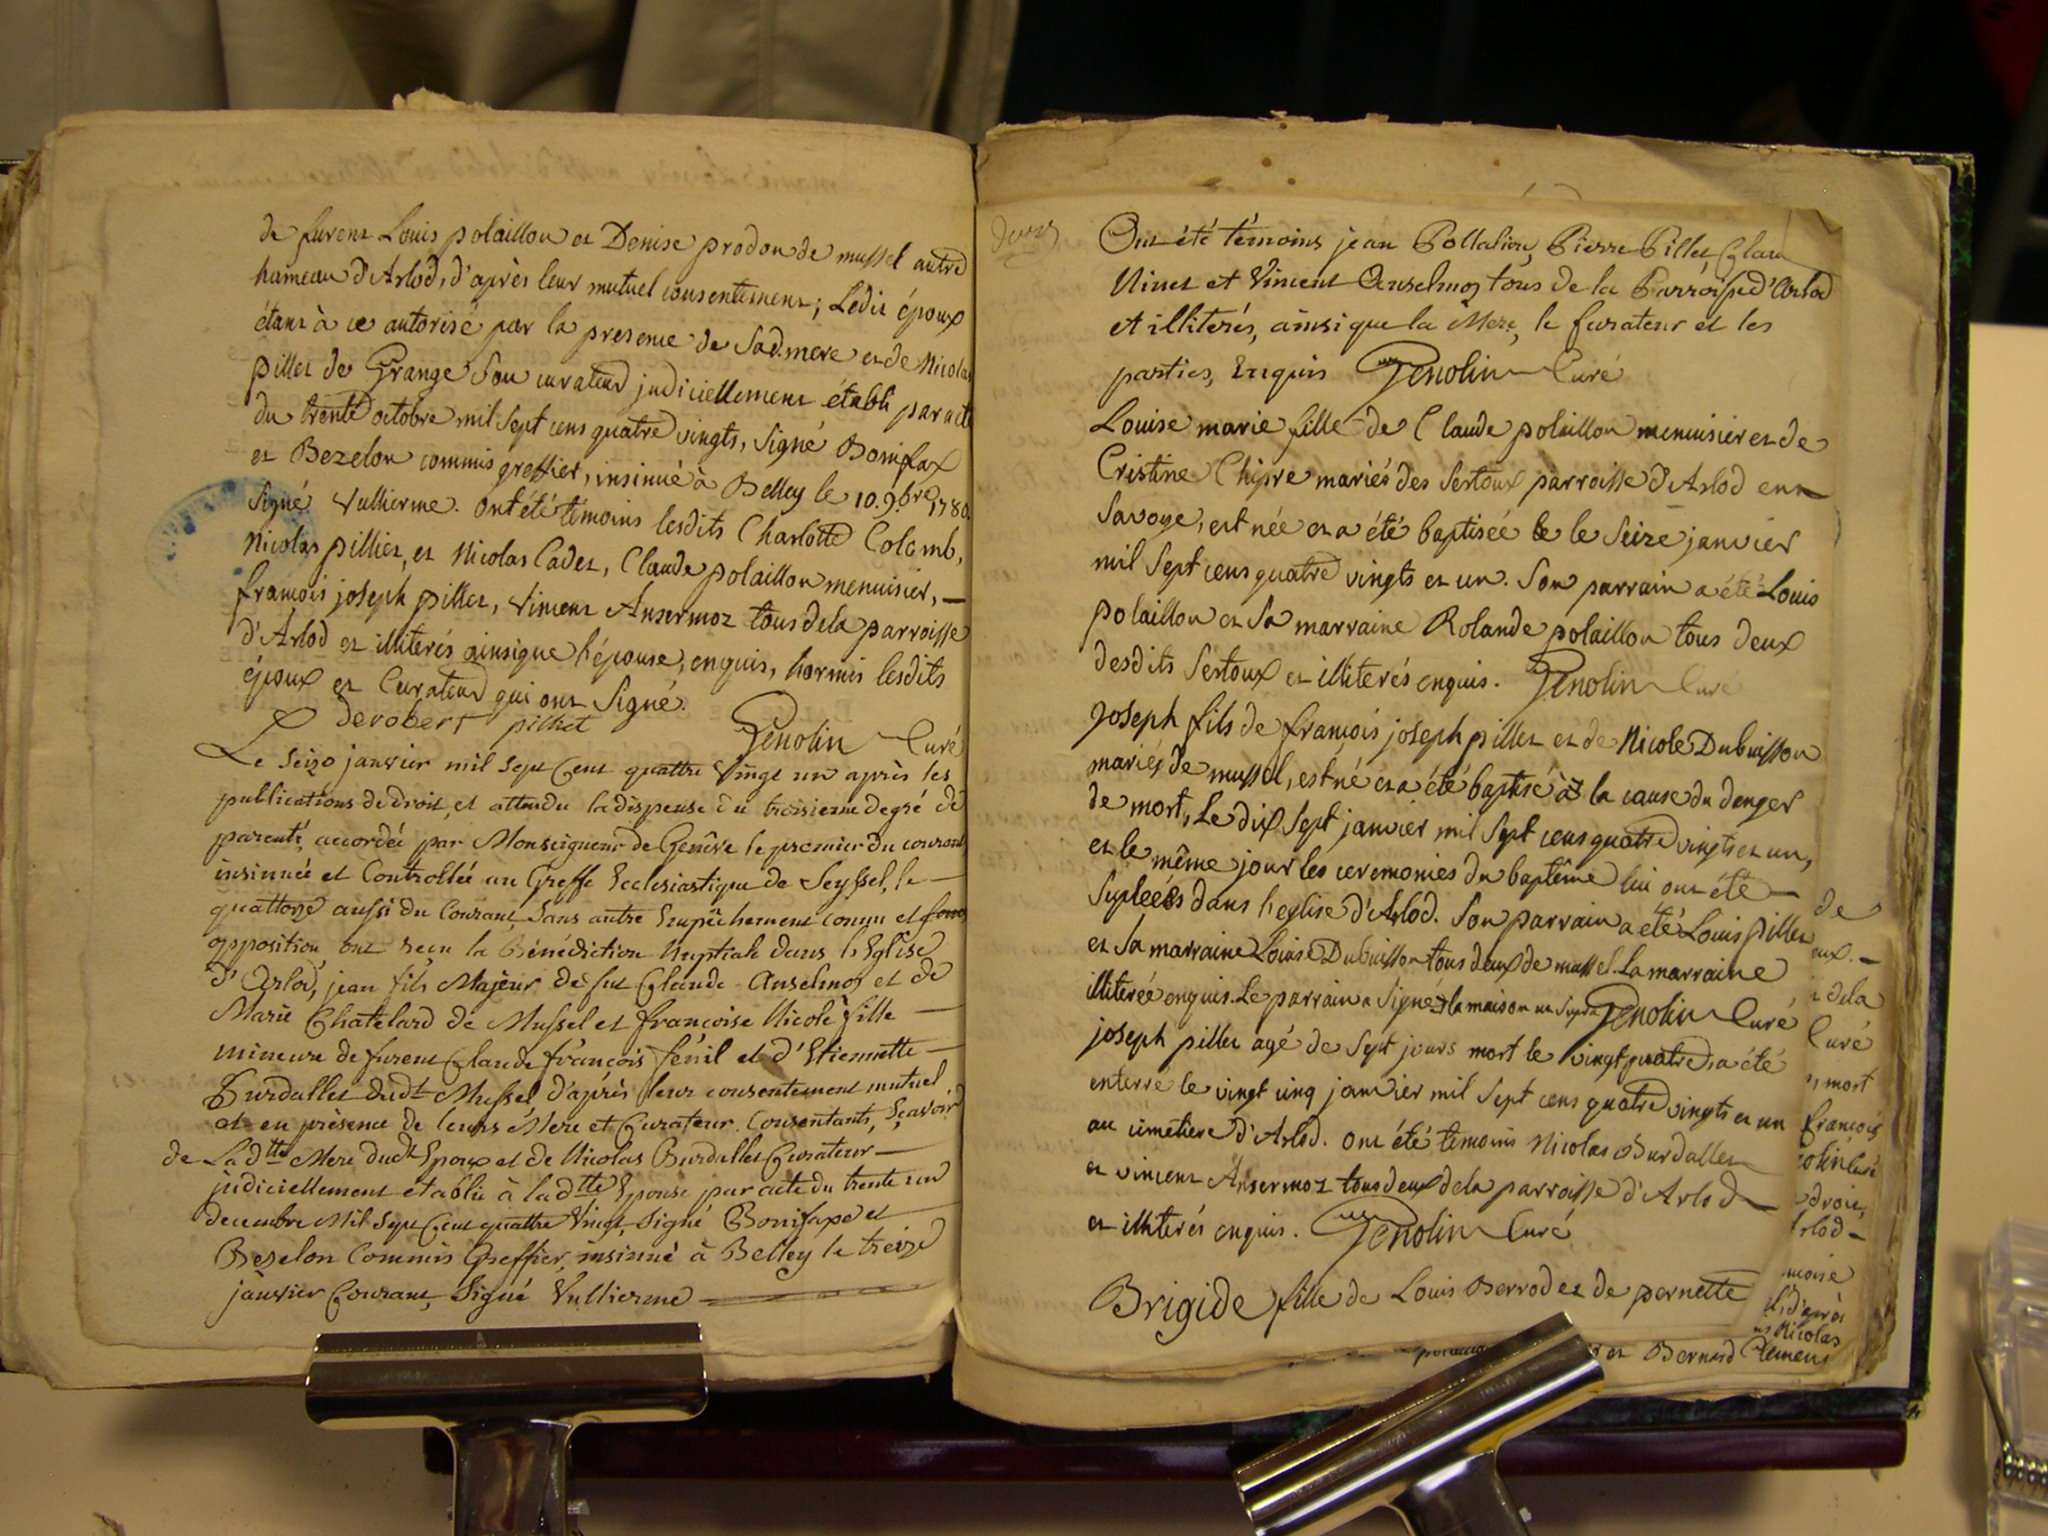 de furent Louis polaillon et Denise prodon de mussel autre
hameau d'Arlod, d'après leur mutuel consentement; Ledit époux
étant à ce autorisé par la presence de Sad. mere et de Nicolas
pillet de Grange Son curateur judiciellement établi par acte
du trente octobre mil Sept cens quatre vingts, Signé Bonifax
et Bezelon commis greffier, insinué à Belley le 10. 9.bre 1780.
Signé Vullierme. Ont été témoins lesdits Charlotte Colomb,
Nicolas pilliet, et Nicolas Cadet, Claude polaillon menuisier,
françois joseph pillet, Vincent Ansermoz tous dela parroisse
d'Arlod et illiterés ainsique l'épouse, enquis, hormis lesdits
époux et Curateur qui ont Signé.
derobert pilliet Genolin Curé
Le Seize janvier mil Sept Cent quattre Vingt un après les
publications de droit, et attendu la dispense du troisieme degré de
parenté, accordée par Monseigneur de Genève le premier du courant
insinuée et Controllée au Greffe Ecclesiastique de Seyssel, le
quattorze aussi du Courant, Sans autre Empêchement connu et
opposition, ont reçu la Bénédiction Nuptiale dans l'Eglise
d'Arlod, jean fils Majeur de fut Claude Anselmoz et de
Marie Chatelard de Mussel et francoise Nicole fille
mineure de furent Claude françois fénil et d'Etiennette
Burdallet dudt Mussel d'après leur consentement mutuel
et en présence de leurs Mere et Curateur Consentants, Sçavoir
de Ladtte Mere dudt Epoux et de Nicolas Burdallet Curateur
judiciellement établie à ladtte Epouse par acte du trente un
decembre Mil Sept Cent quattre Vingt, Signé Bonifaxe et
Bezelon Commis Greffier, insinué à Belley le treize
janvier Courant, Signé Vullierme
Ont été témoins jean Pollalion, Pierre Pillet
Ninet et Vincent Anselmoz tous de la Parroisse d'Arlod
et illiterés, ainsi que la Mere, le Curateur et les
parties, Enquis Genolin Curé
Louise marie fille de Claude polaillon menuisier et de
Cristine Chipre mariés des Sertoux parroisse d'Arlod en
Savoye, est née et a été baptisée le Seize janvier
mil Sept cens quatre vingts et un. Son parrain a été Louis
polaillon et Sa marraine Rolande polaillon tous deux
desdits Sertoux et illiterés enquis. Genolin Curé
Joseph fils de françois joseph pillet et de Nicole Dubuisson
mariés de mussel, est né et a été baptisé à la cause du denger
de mort, Le dix Sept janvier mil Sept cens quatre vingts et un,
et le même jour les ceremonies du baptême lui ont été
Supleées dans l'eglise d'Arlod. Son parrain a été Louis pillet
et Sa marraine Louise Dubuisson tous deux de mussel. La marraine
illiterée enquis. Le parrain a Signé à la maison Genolin Curé
joseph pillet agé de Sept jours mort le vingt quatre, a été
enterré le vingt cinq janvier mil Sept cens quatre vingts et un
au cimetiere d'Arlod. ont été temoins Nicolas Burdallet
et vincent Ansermoz tous deux dela parroisse d'Arlod
et illiterés enquis. Genolin Curé
Brigide fille de Louis Berrod et de pernette
de
dela
Curé
mort
françois
droit,
d'après
Nicolas
et Bernard Clemens